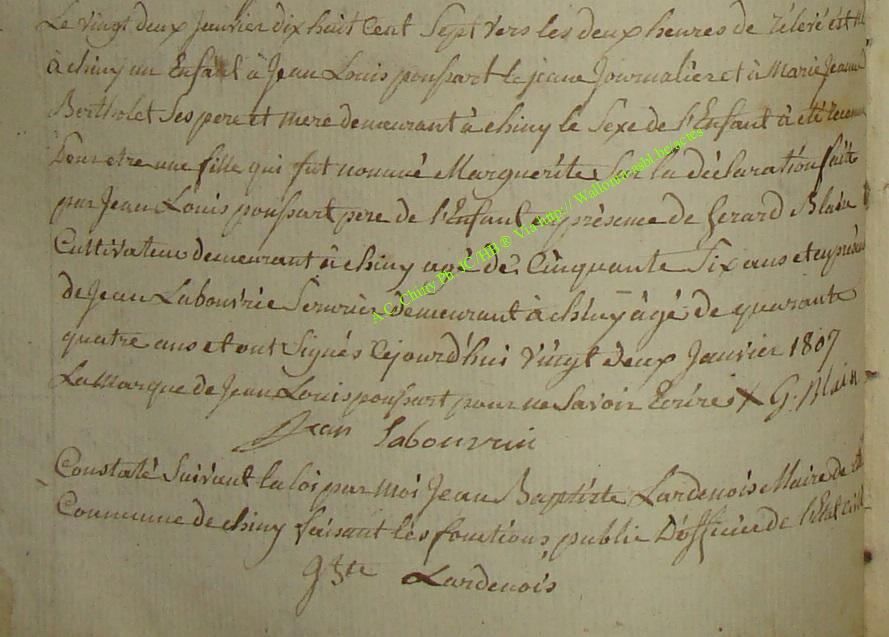 Le vingt deux Janvier dix huit Cent Sept vers les deux heures de relevé est né
à chiny un Enfant à Jean Louis poussart le jeune Journalier et à Marie Jeanne
Bertholet Ses pere et mere demeurant à chiny le Sexe de l'Enfant à été reconnu
pour etre une fille qui fut nommé Marguerite Sur la déclaration faite
par Jean Louis poussart pere de l'Enfant en présence de Gerard Blain
Cultivateur demeurant à chiny agé de Cinquante Six ans et en présence
de Jean Labouvrie Serrurier demeurant à chiny âgé de quarante
quatre ans et ont Signés Cejourd'hui vingt deux Janvier 1807
La Marque de Jean Louis poussart pour ne Savoir Ecrire X G. Blain
Jean Labouvrie
Constaté Suivant la loi par moi Jean Baptiste Lardenois Maire de la
Commune de chiny faisant les fonctions public D'officier de l'Etat civil
Lardenois
A.C. Chiny Ph JC/HB ® Via http://Wallonia.asbl.be/actes